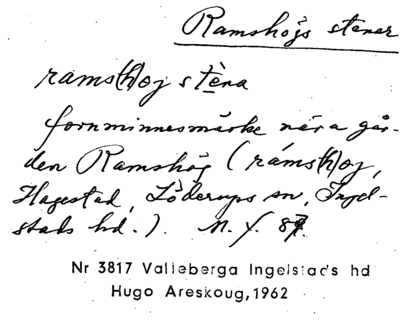 Ramshögs stenar
rams(h)oj stena
fornminnesmärke nära går-
den Ramshög (ráms(h)oj,
Hagestad, Löderups sn, Ingel-
stads hd.). M. f. 87.
Nr 3817 Valleberga Ingelstads hd
Hugo Areskoug, 1962